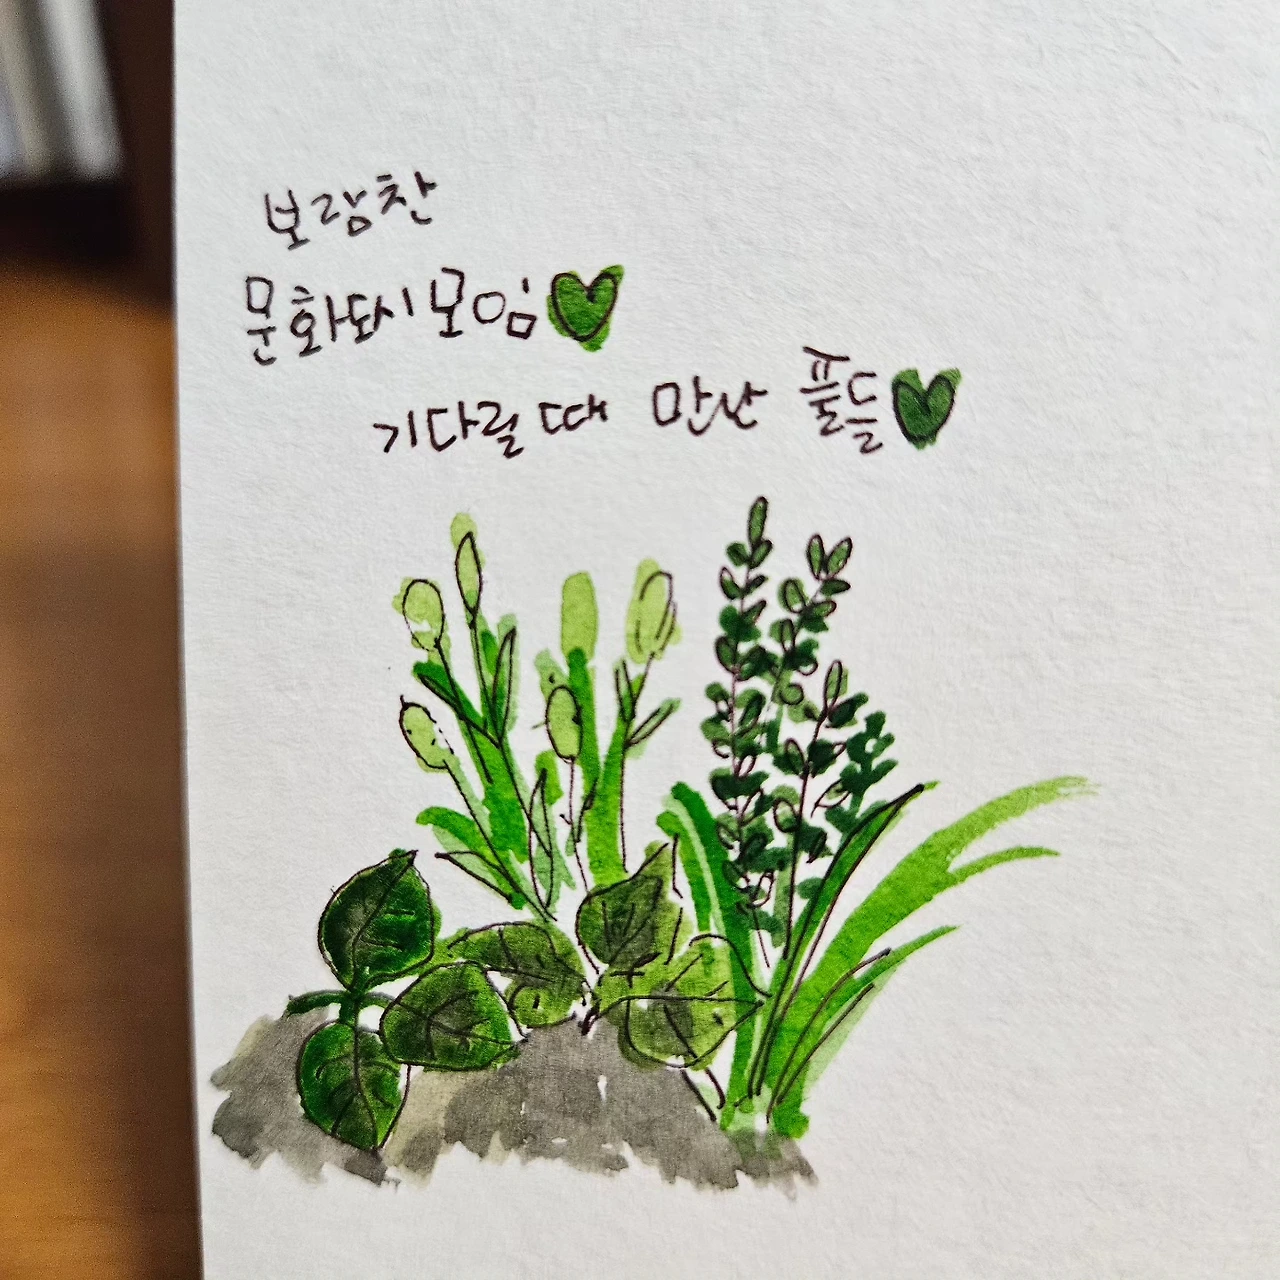 보람찬
문화도시 모임
기다릴 때 만난 풀들